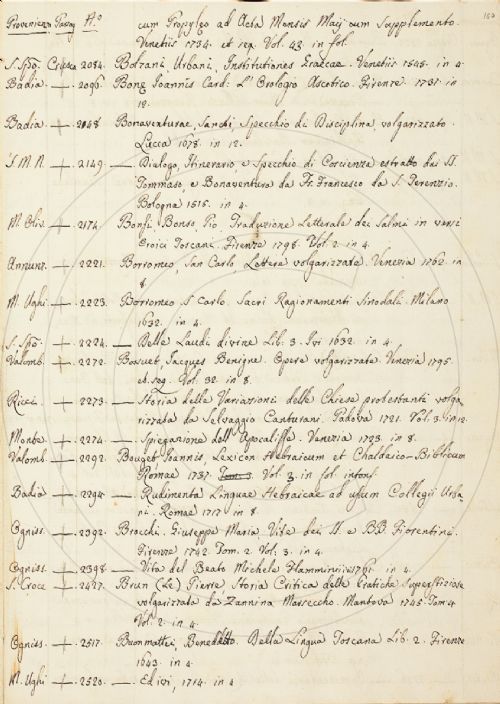 Provenienza Passag. N.o
cum Propyleo ad Acta Mensis Maij cum Supplemento.
Venetiis 1734. et seq. Vol. 43. in fol.
S. Spo. 2084. Bolzani, Urbani, Institutiones Graecae. Venetiis 1545. in 4.
Badia. + 2096. Bona Joannis Card: L' Orologio Ascetico. Firenze 1737. in
12.
Badia + 2148 Bonaventurae, Sancti, Specchio di Disciplina, volgarizzato.
Lucca 1678. in 12.
S. M. N. + 2149. — Dialogo, Itinerario, e Specchio di Coscienza estratto dai SS.
Tommaso, e Bonaventura da Fr. Francesco da S. Terenzio.
Bologna 1515. in 4.
M. Oliv. + 2174. Bonfi, Bonso, Pio, Traduzione Letterale dei Salmi in versi
Eroici Toscani. Firenze 1798. Vol. 2. in 4.
Annunz. + 2221. Borromeo, San Carlo, Lettere volgarizzate. Venezia 1762. in
8.
M. Ughi + 2223. Borromeo S. Carlo. Sacri Ragionamenti Sinodali. Milano
1632. in 4.
S. Spo. + 2224. — Delle Laudi divine Lib. 3. Ivi 1632. in 4.
Valomb. + 2272. Bossuet, Jacques Benigne. Opere volgarizzate. Venezia 1795.
et seg. Vol. 32. in 8.
Ricci + 2273 — Storia delle Variazioni delle Chiese protestanti volga
rizzata da Selvaggio Canturani. Padova 1721. Vol. 3. in 12.
Monte + 2274. — Spiegazione dell' Apocalisse. Venezia 1723. in 8.
Valomb. + 2292. Bouget Joannis, Lexicon Hebraicum et Chaldaico-Biblicum
Romae 1737. Tom. 3. Vol. 3. in fol.
Badia + 2294. — Rudimenta Linguae Hebraicae ad usum Collegii Urba
ni. Romae 1717. in 8.
Ogniss. + 2392. Brocchi, Giuseppe Maria, Vite dei SS. e BB. Fiorentini.
Firenze 1742. Tom. 2. Vol. 3. in 4.
Ogniss. + 2398 — Vita del Beato Michele Flammini 1761. in 4.
S. Croce + 2427. Brun (Le) Pierre, Storia Critica delle Pratiche Superstiziose
volgarizzata da Zannina Marsecchi. Mantova 1745. Tom 4.
Vol. 2. in 4.
Ogniss. + 2517. Buonmattei, Benedetto. Della Lingua Toscana Lib. 2. Firenze
1643. in 4.
M. Ughi + 2520. — Ed ivi, 1714. in 4